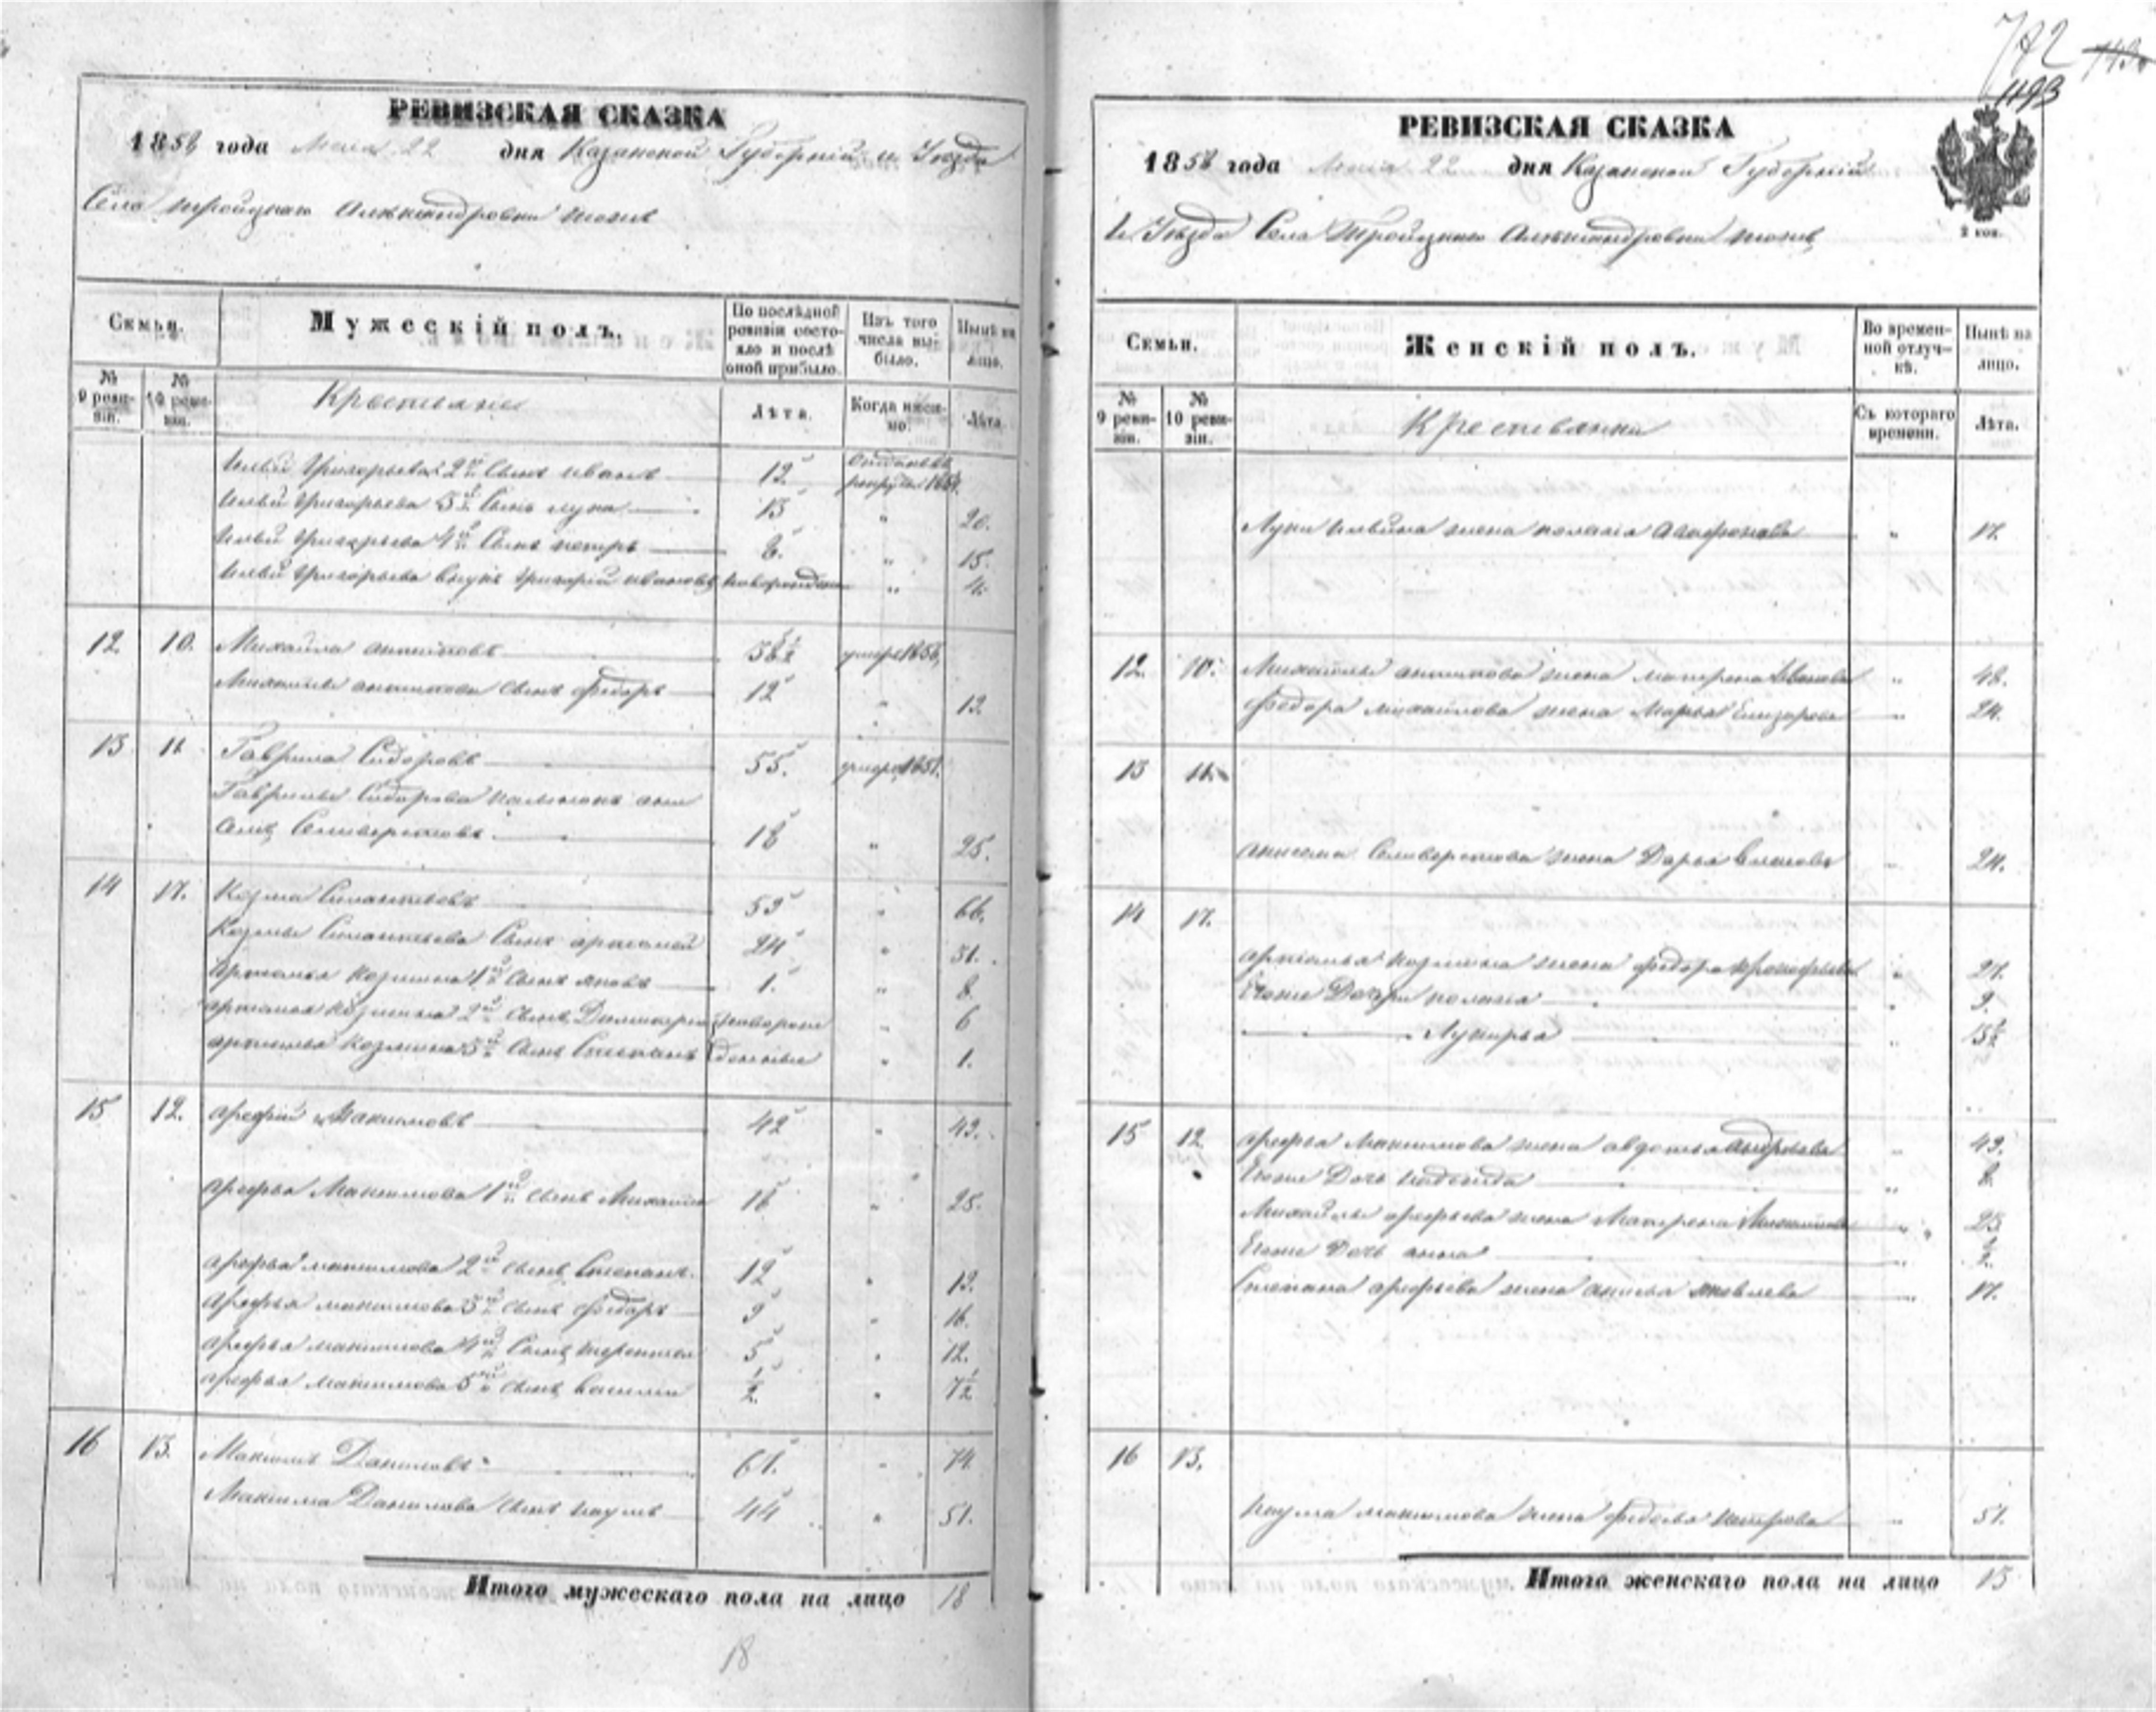 742 1193
РЕВИЗСКАЯ СКАЗКА
1858 года Маія 22 дня Казанской Губерніи и Уѣзда
Села Троицкаго Александровки тожъ
Семьи.
Мужескій полъ.
По послѣдней ревизіи состояло и послѣ оной прибыло.
Изъ того числа выбыло.
Нынѣ на лицо.
№ 9 ревизіи.
№ 10 ревизіи.
Крестьяне
Лѣта.
Когда именно.
Лѣта.
Ильи Григорьева 2й Сынъ иванъ 12
Ильи Григорьева 3й Сынъ лука 13 " 20.
Ильи Григорьева 4й Сынъ петръ 8. " 15.
Ильи Григорьева внукъ Григорій ивановъ новорожден " 4.
12 10. Михайла антиповъ умеръ
Михайлы антипова сынъ федоръ 12 " 19.
13 11 Гаврила Сидоровъ 55. умеръ 1851.
Гаврилы Сидорова
Селиверстовъ 18 " 25.
14 17. Козма Силантьевъ 59 " 66.
Козмы Силантьева Сынъ артемей 24 " 31.
Артемья Козмина 1й Сынъ яковъ 1. " 8.
артемья Козмина 2й Сынъ Дмитрій новорож " 6
артемья Козмина 3й Сынъ Степанъ денные " 1.
15 12. арефій Максимовъ 42 " 49.
арефья Максимова 1й сынъ Михайла 18 " 25.
арефья максимова 2й сынъ Степанъ 12 " 19.
Арефья максимова 3й сынъ федоръ 9 " 16.
арефья максимова 4й Сынъ терентей 5 " 12.
арефья максимова 5й сынъ василій ½ " 7½
16 13. Максимъ Даниловъ 67. " 74.
Максима Данилова сынъ наумъ 44 " 51.
Итого мужескаго пола на лицо 18
18
РЕВИЗСКАЯ СКАЗКА
1858 года Маія 22 дня Казанской Губерніи
И Уѣзда Села Троицкаго Александровки тожъ
2 коп.
Семьи.
Женскій полъ.
Во временной отлучкѣ.
Нынѣ на лицо.
№ 9 ревизіи.
№ 10 ревизіи.
Крестьянки
Съ котораго времени.
Лѣта.
Луки ильина жена пелагія Агафонова " 17.
12. 10. Михайлы антипова жена матрена Иванова " 48.
федора михайлова жена Марья Елизарова " 24.
13 11.
анисима Селиверстова жена Дарья власова 24.
14 17.
артемья козмина жена федора прокофьева " 27.
Егоже Дочери пелагея " 9.
Лукерья "
15 12 арефья максимова жена авдотья андреева " 49.
Егоже Дочь надежда " 8.
Михайлы арефьева жена Матрена " 25.
Егоже Дочь анна " ½
Степана арефьева жена анисья яковлева " 17.
16 13.
наума максимова жена федосья петрова " 51.
Итого женскаго пола на лицо 13